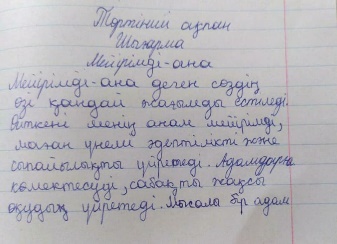 Төртінші ақпан
Шығарма
Мейірімді-ана
Мейірімді-ана деген сөздің
өзі қандай жағымды естіледі.
Өйткені менің анам мейірімді,
маған үнемі әдептілікті және
сыпайылықты үйретеді. Адамдарға
көмектесуді, сабақты жақсы
оқудың үйретеді. Мысалы бір адам